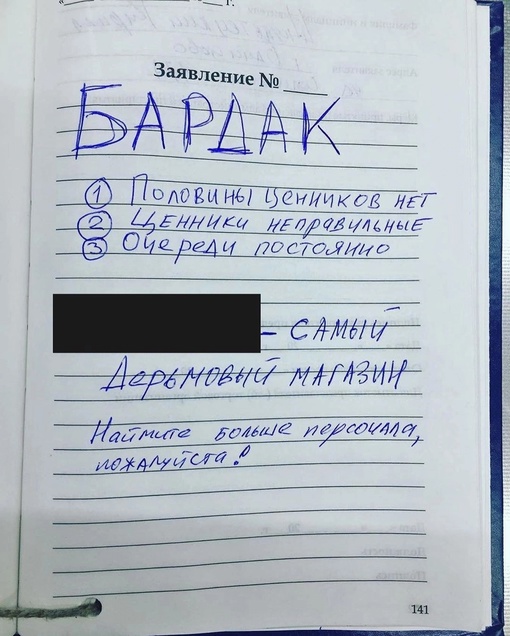 г.
Заявление № ____
БАРДАК
① Половины ценников нет
② Ценники неправильные
③ Очереди постоянно
– САМЫЙ
Дерьмовый МАГАЗИН
Наймите больше персонала,
пожалуйста!
141